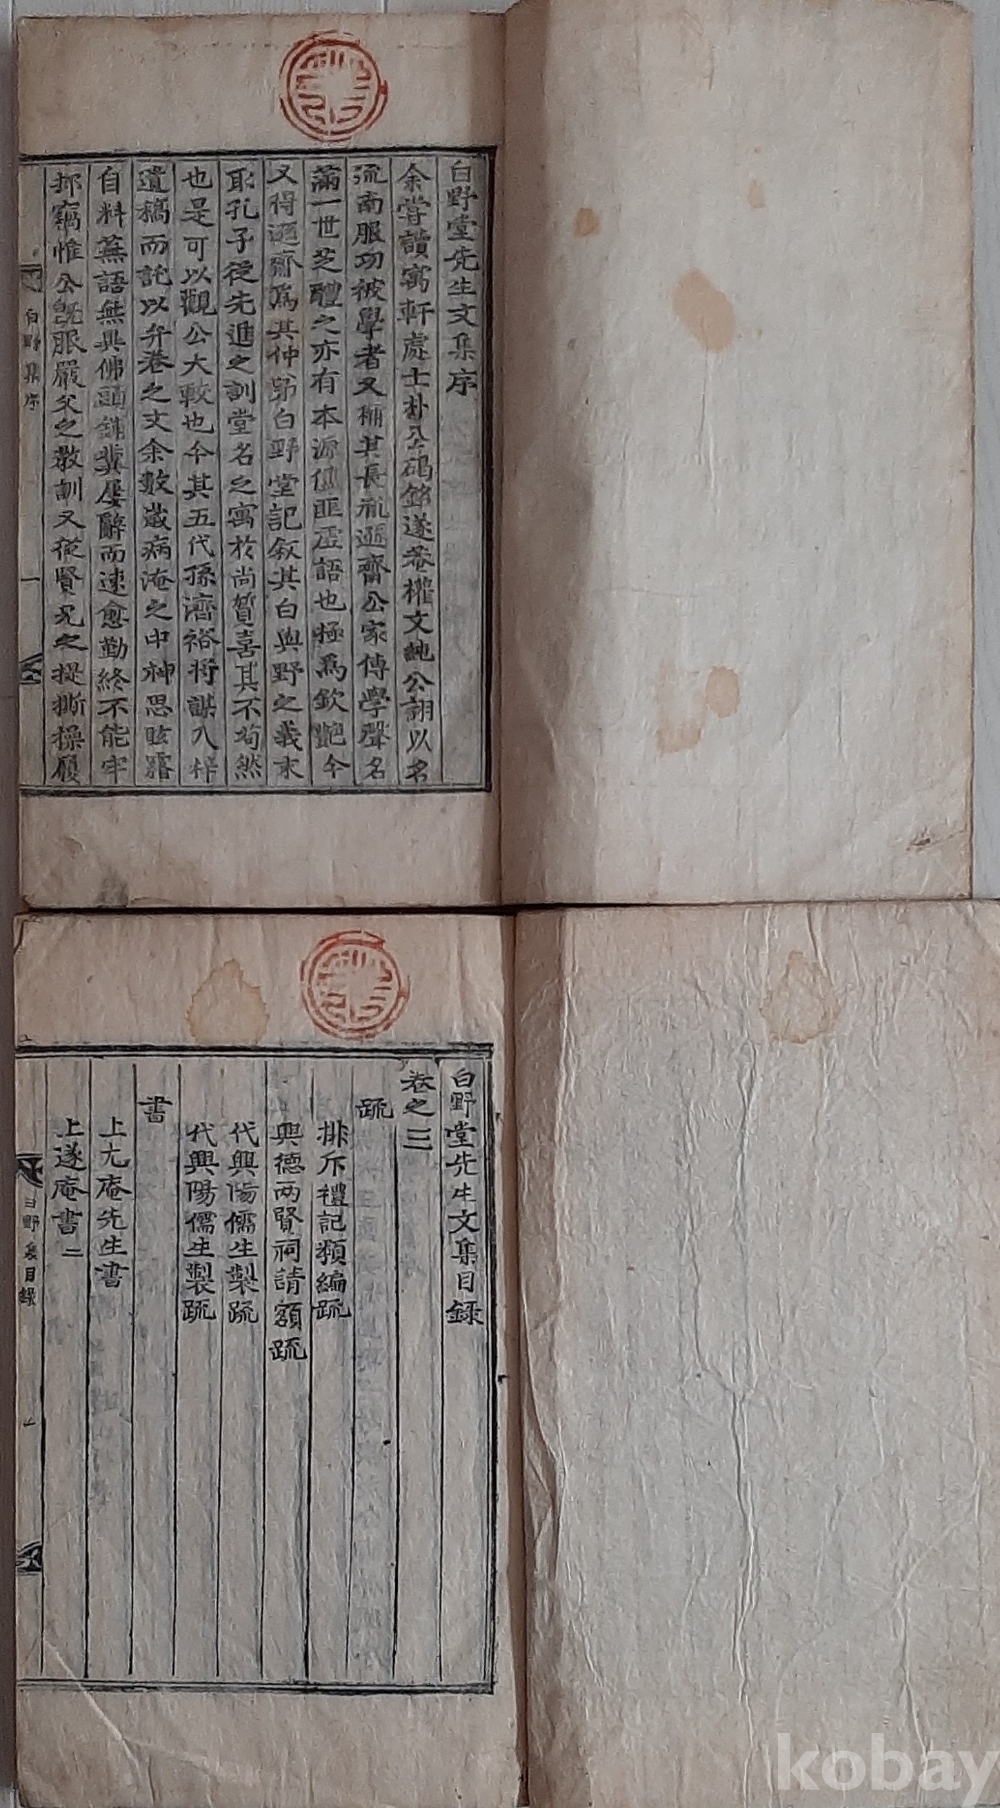 白野堂先生文集序
余嘗讀寓軒處士朴公碣銘遂菴權文純公詡以名
流南服功被學者又稱其長胤遯齋公家傳學聲名
滿一世芝醴之亦有本源儘匪虛語也極爲欽艶今
又得遯齋爲其仲弟白野堂記叙其白與野之義末
取孔子從先進之訓堂名之寓於尚質喜其不苟然
也是可以觀公大較也今其五代孫濟裕將謀入梓
遺稿而託以弁巻之文余數歲病淹之中神思眩
自料蕪語無異佛頭鋪糞屢辭而速愈勤終不能牢
竊惟公既服嚴父之敎訓又從賢兄之提撕操履
白野集序
一
白野堂先生文集目錄
卷之三
疏
排斥禮記類編疏
興德兩賢祠請額疏
代興陽儒生製疏
代興陽儒生製疏
書
上尤庵先生書
上遂庵書二
白野集目錄
一
kobay